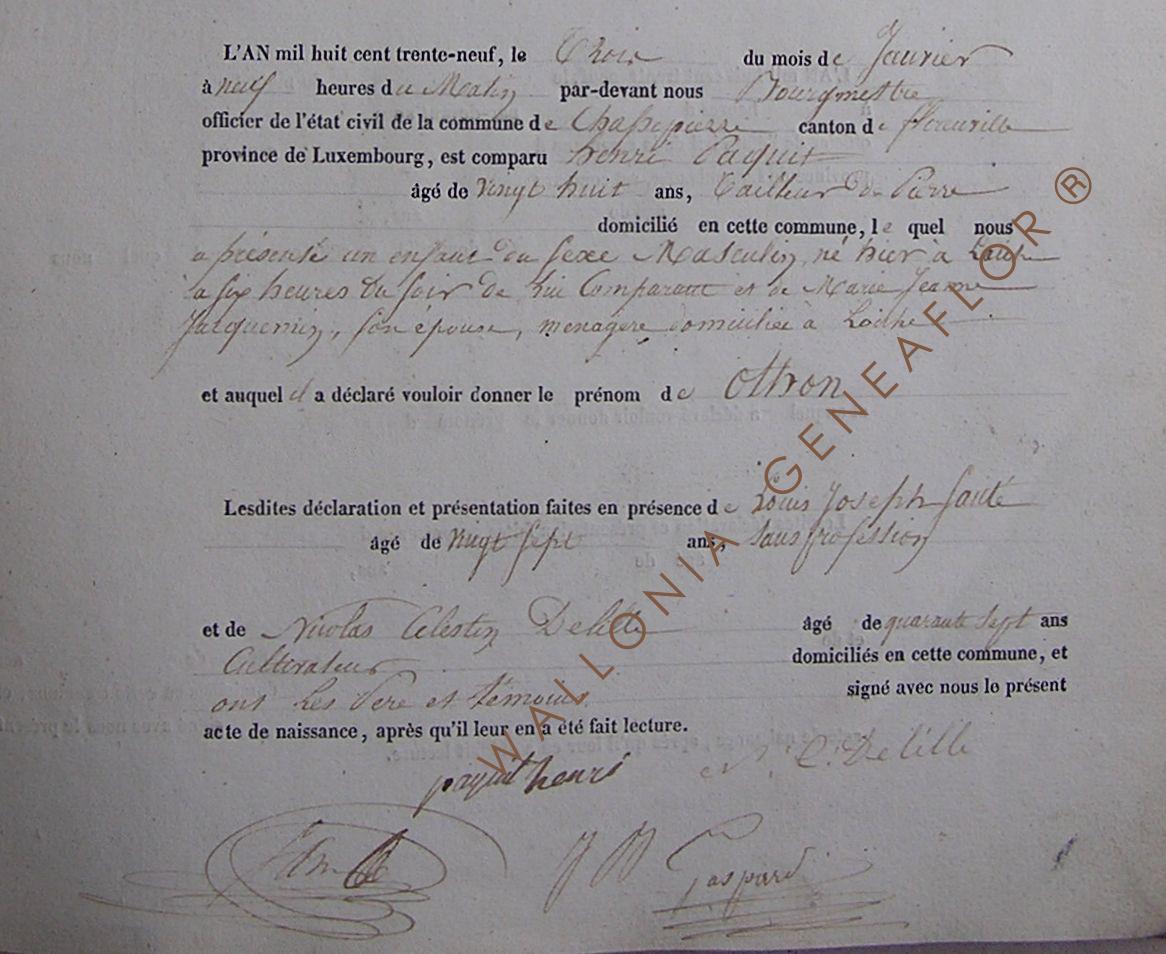 L'AN mil huit cent trente-neuf, le Trois du mois de Janvier
à neuf heures du Matin par-devant nous Bourgmestre
officier de l'état civil de la commune de Chassepierre canton de Florenville
province de Luxembourg, est comparu henri Paquit
âgé de Vingt huit ans, Tailleur De Pierre
domicilié en cette commune, le quel nous
a présenté un enfant du sexe Masculin né hier à
à six heures du soir de lui Comparant et de Marie Jeanne
Jacquemin, son épouse, menagere domiciliée à
et auquel il a déclaré vouloir donner le prénom de Othon
Lesdites déclaration et présentation faites en présence de Louis Joseph
âgé de Vingt sept ans, sans profession
et de Nicolas Celestin Delille âgé de quarante sept ans
Cultivateur domiciliés en cette commune, et
ont Les Pere et témoins signé avec nous le présent
acte de naissance, après qu'il leur en a été fait lecture.
paquit henri N. C. Delille
Gaspard
WALLONIA GENEAFLOR ®